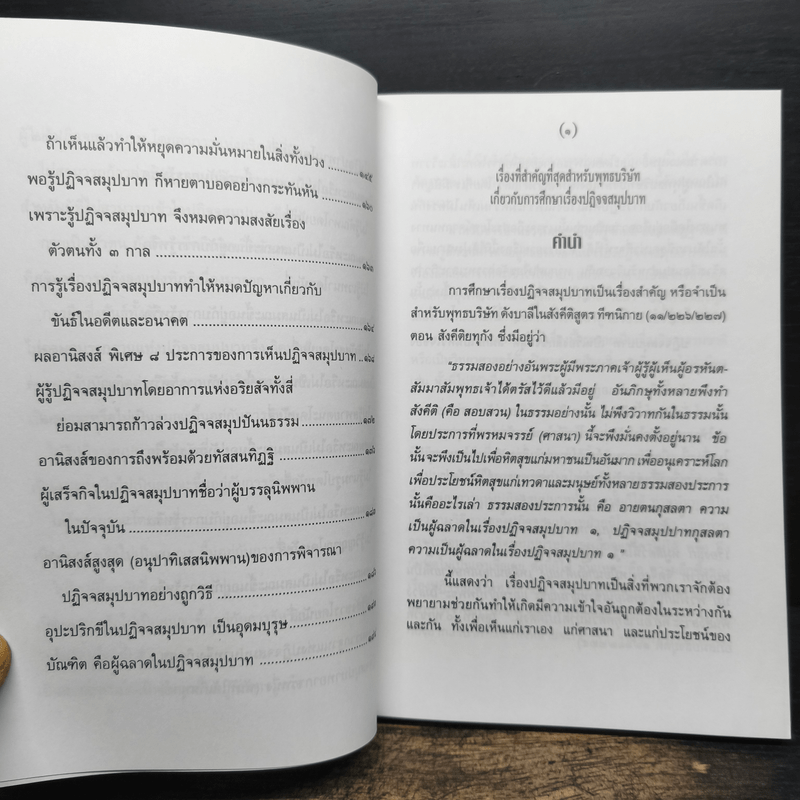 ถ้าเห็นแล้วทำให้หยุดความมั่นหมายในสิ่งทั้งปวง ........ ๑๔๕
พอรู้ปฏิจจสมุปบาท ก็หายตาบอดอย่างกระทันหัน ........ ๑๖๐
เพราะรู้ปฏิจจสมุปบาท จึงหมดความสงสัยเรื่อง
ตัวตนทั้ง ๓ กาล
การรู้เรื่องปฏิจจสมุปบาททำให้หมดปัญหาเกี่ยวกับ
ขันธ์ในอดีตและอนาคต
ผลอานิสงส์ พิเศษ ๘ ประการของการเห็นปฏิจจสมุปบาท
ผู้รู้ปฏิจจสมุปบาทโดยอาการแห่งอริยสัจทั้งสี่
ย่อมสามารถก้าวล่วงปฏิจจสมุปปันนธรรม
อานิสงส์ของการถึงพร้อมด้วยทัสสนทิฏฐิ
ผู้เสร็จกิจในปฏิจจสมุปบาทชื่อว่าผู้บรรลุนิพพาน
ในปัจจุบัน
อานิสงส์สูงสุด (อนุปาทิเสสนิพพาน)ของการพิจารณา
ปฏิจจสมุปบาทอย่างถูกวิธี
อุปะปริกขีในปฏิจจสมุปบาท เป็นอุดมบุรุษ
บัณฑิต คือผู้ฉลาดในปฏิจจสมุปบาท
(๑)
เรื่องที่สำคัญที่สุดสำหรับพุทธบริษัท
เกี่ยวกับการศึกษาเรื่องปฏิจจสมุปบาท
คำนำ
การศึกษาเรื่องปฏิจจสมุปบาทเป็นเรื่องสำคัญ หรือจำเป็น
สำหรับพุทธบริษัท ดังบาลีในสังคีติสูตร ทีฑนิกาย (๑๑/๒๒๖/๒๒๗)
ตอน สังคีติยทุกัง ซึ่งมีอยู่ว่า
"ธรรมสองอย่างอันพระผู้มีพระภาคเจ้าผู้รู้ผู้เห็นผู้อรหันต-
สัมมาสัมพุทธเจ้าได้ตรัสไว้ดีแล้วมีอยู่ อันภิกษุทั้งหลายพึงทำ
สังคีติ (คือ สอบสวน) ในธรรมอย่างนั้น ไม่พึงวิวาทกันในธรรมนั้น
โดยประการที่พรหมจรรย์ (ศาสนา) นี้จะพึงมั่นคงตั้งอยู่นาน ข้อ
นั้นจะพึงเป็นไปเพื่อหิตสุขแก่มหาชนเป็นอันมาก เพื่ออนุเคราะห์โลก
เพื่อประโยชน์หิตสุขแก่เทวดาและมนุษย์ทั้งหลายธรรมสองประการ
นั้นคืออะไรเล่า ธรรมสองประการนั้น คือ อายตนกุสลตา ความ
เป็นผู้ฉลาดในเรื่องปฏิจจสมุปบาท ๑, ปฏิจจสมุปปาทกุสลตา
ความเป็นผู้ฉลาดในเรื่องปฏิจจสมุปบาท ๑ "
นี้แสดงว่า เรื่องปฏิจจสมุปบาทเป็นสิ่งที่พวกเราจักต้อง
พยายามช่วยกันทำให้เกิดมีความเข้าใจอันถูกต้องในระหว่างกัน
และกัน ทั้งเพื่อเห็นแก่เราเอง แก่ศาสนา และแก่ประโยชน์ของ